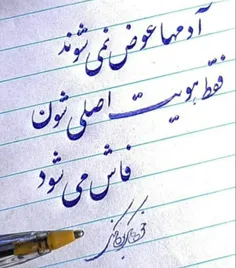 آدمها عوض نمی شوند
فقط هویت اصلی شون
فاش می شود